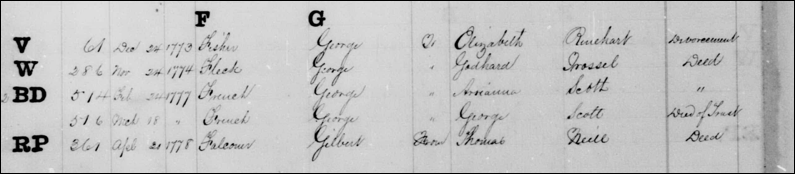 F G
V 61 Dec 24 1773 Fisher George To Elizabeth Rinehart
W 286 Nov 24 1774 Fleck George " Godhard Grossel Deed
BD 514 Feb 24 1777 French George " Arianna Scott "
516 Mch 18 " French George " George Scott Deed of Trust
RP 361 Apl 21 1778 Falconer Gilbert From Thomas Neill Deed